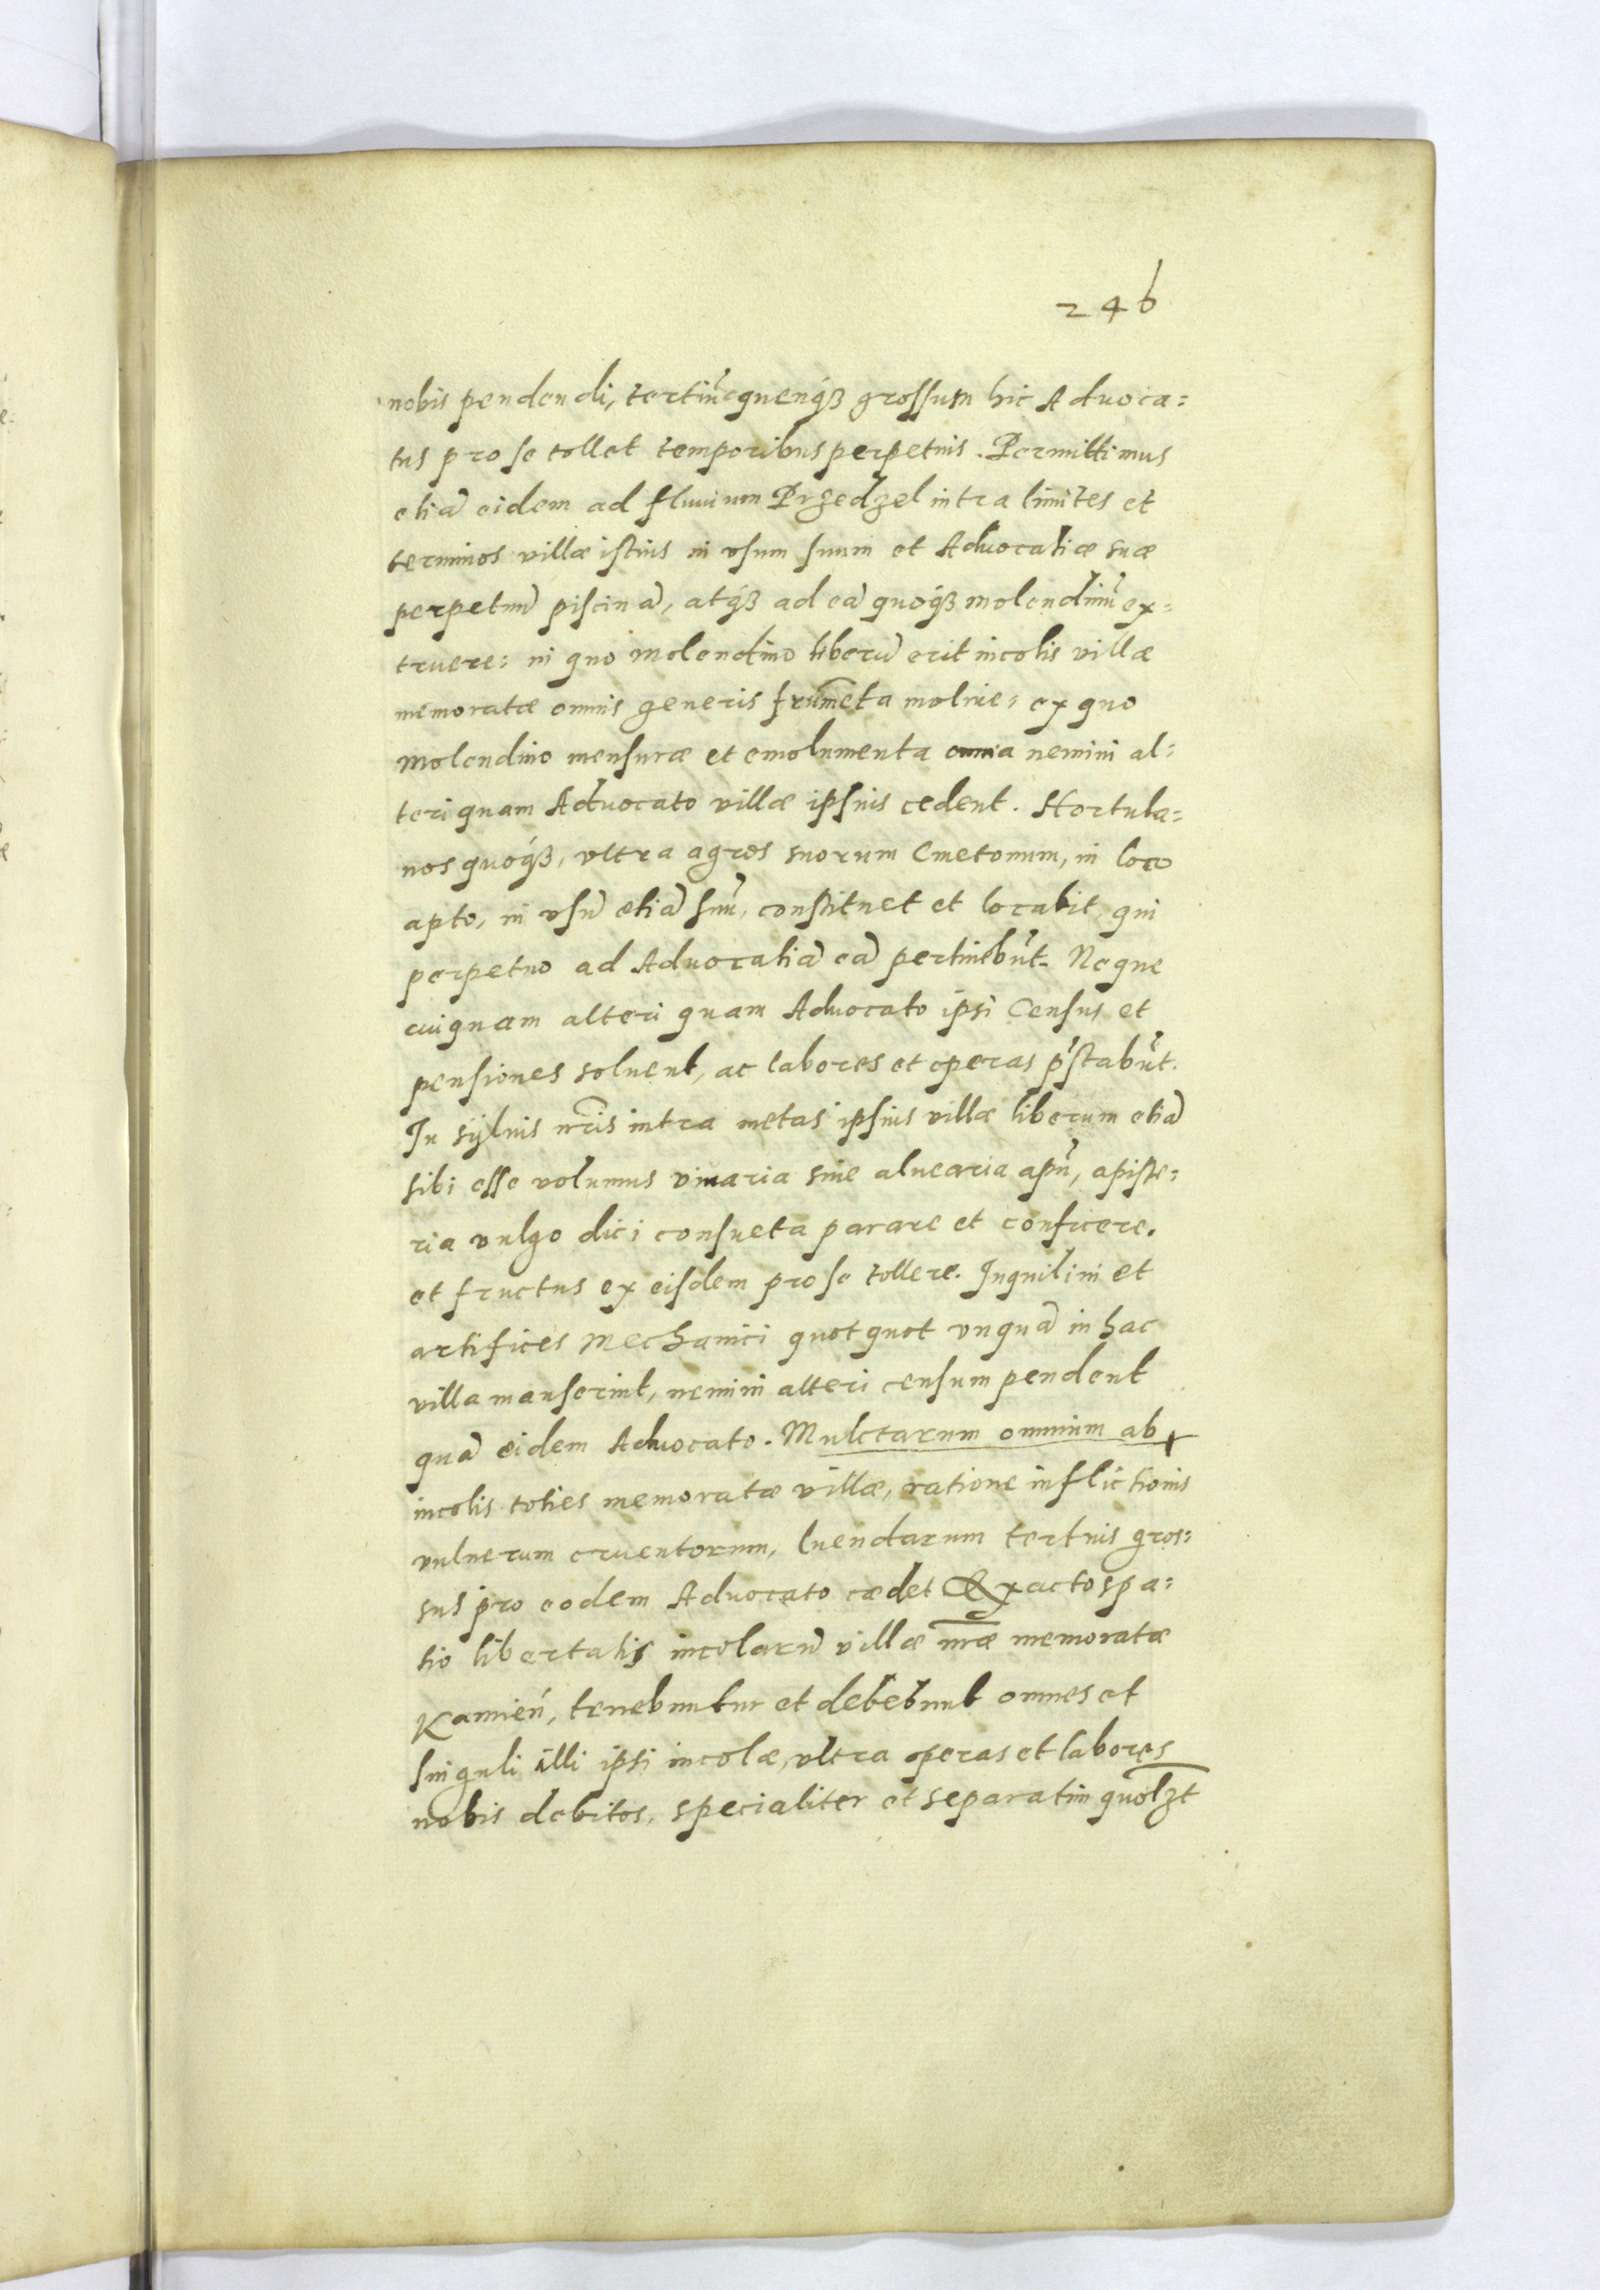 246
nobis pendendi, tertiũ quenq́ꝫ grossum hic Aduoca=
tus pro se tollet temporibus perpetuis. Permittimus
etiã eidem ad fluuium Przedzel intra limites et
terminos villæ istius in vsum suum et Aduocatiæ suæ
perpetuũ piscinã, atq́ꝫ ad eã quoq́ꝫ molendinũ ex=
truere: in quo molendino liberũ erit incolis villæ
memoratæ omnis generis frumẽta molere: ex quo
molendino mensuræ et emolumenta omnia nemini al=
teri quam Aduocato villæ ipsius cedent. Hortula=
nos quoq́ꝫ, vltra agros suorum Cmetonum, in loco
apto, in vsũ etiã suũ, constituet et locabit, qui
perpetuo ad Aduocatiã eã pertinebũt. Neque
cuiquam alteri quam Aduocato ipsi Census et
pensiones soluent, ac labores et operas p̃stabũt.
In syluis nr̃is intra metas ipsius villæ liberum etiã
sibi esse volumus viuaria siue aluearia apũ, apiste=
ria vulgo dici consueta parare et conficere,
et fructus ex eisdem pro se tollere. Inquilini et
artifices Mechanici quotquot vnquã in hac
villa manserint, nemini alteri censum pendent
quã eidem Aduocato. Mulctarum omnium ab
incolis toties memoratæ villæ, ratione inflictionis
vulnerum cruentorum, luendarum tertius gros=
sus pro eodem Aduocato cædet Exacto spa=
tio libertatis incolarũ villæ nr̃æ memoratæ
Kamień, tenebuntur et debebunt omnes et
singuli illi ipsi incolæ, vltra operas et labores
nobis debitos, specialiter et separatim quolꝫt